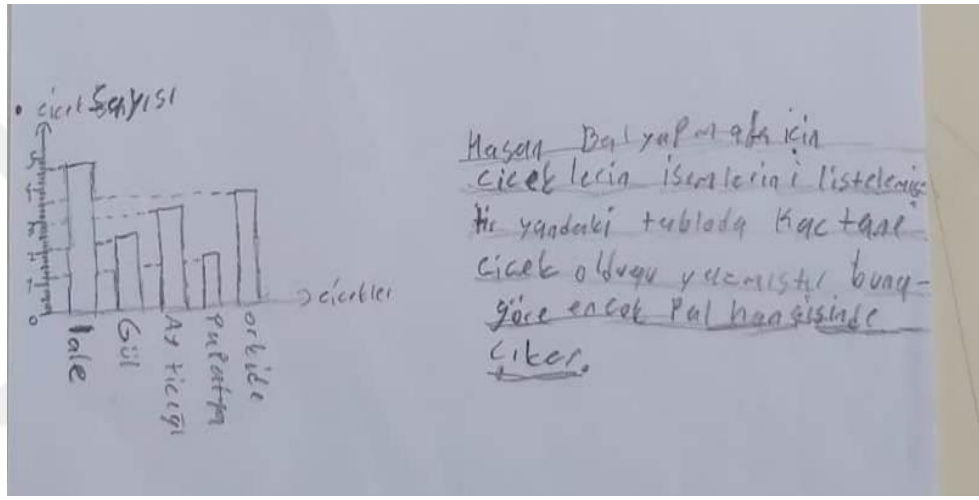 • çicek Sayısı
5
4
3
2
1
0
lale
Gül
Ay çiceği
Papatya
orkide
çicekler
Hasan Bal yapmak icin
cicek lerin isimlerini listelemiş-
tir yandaki tabloda Kac tane
cicek oldugu yazmıstır buna-
göre encok bal hangisinde
çıkar.